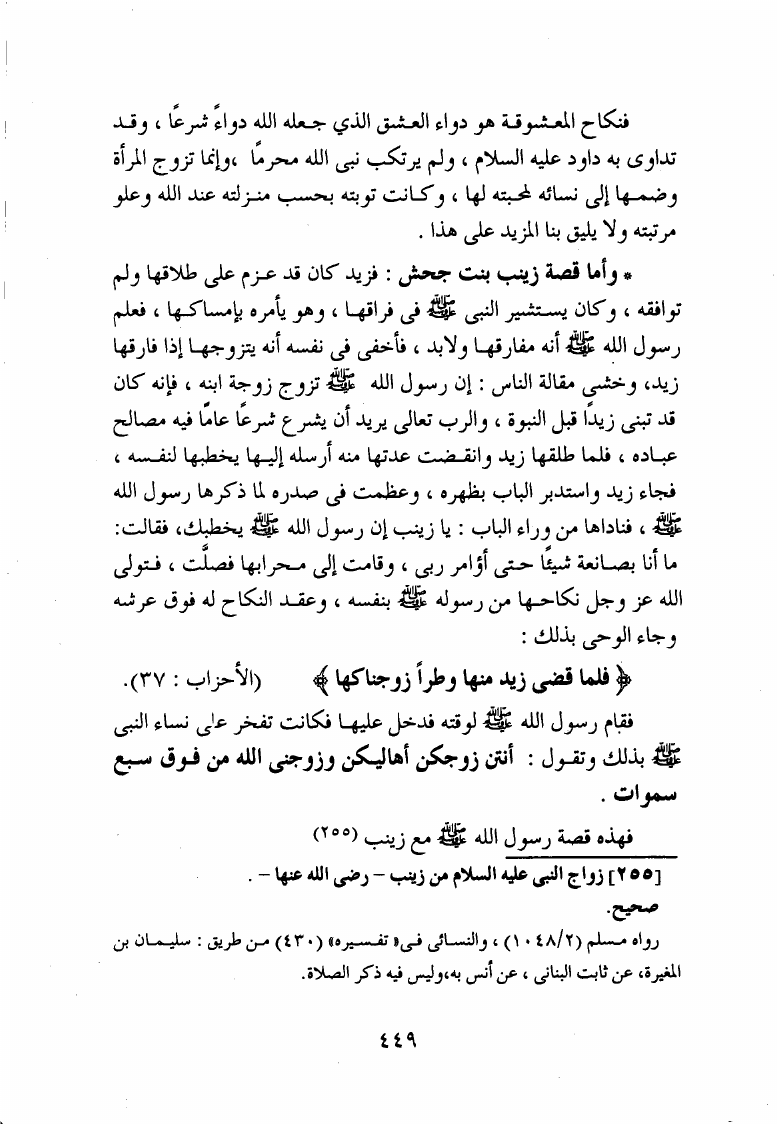 فنكاح المعشوقة هو دواء العشق الذي جعله الله دواءً شرعًا ، وقد
تداوى به داود عليه السلام ، ولم يرتكب نبى الله محرمًا ،وإنما تزوج المرأة
وضمها إلى نسائه لمحبته لها ، وكانت توبته بحسب منزلته عند الله وعلو
مرتبته ولا يليق بنا المزيد على هذا .
* وأما قصة زينب بنت جحش : فزيد كان قد عزم على طلاقها ولم
توافقه ، وكان يستشير النبى ﷺ فى فراقها ، وهو يأمره بإمساكها ، فعلم
رسول الله ﷺ أنه مفارقها ولابد ، فأخفى فى نفسه أنه يتزوجها إذا فارقها
زيد، وخشي مقالة الناس : إن رسول الله ﷺ تزوج زوجة ابنه ، فإنه كان
قد تبنى زيدًا قبل النبوة ، والرب تعالى يريد أن يشرع شرعًا عامًا فيه مصالح
عباده ، فلما طلقها زيد وانقضت عدتها منه أرسله إليها يخطبها لنفسه ،
فجاء زيد واستدبر الباب بظهره ، وعظمت فى صدره لما ذكرها رسول الله
ﷺ ، فناداها من وراء الباب : يا زينب إن رسول الله ﷺ يخطبك، فقالت:
ما أنا بصانعة شيئًا حتى أؤامر ربى ، وقامت إلى محرابها فصلَّت ، فتولى
الله عز وجل نكاحها من رسوله ﷺ بنفسه ، وعقد النكاح له فوق عرشه
وجاء الوحى بذلك :
﴿ فلما قضى زيد منها وطراً زوجناكها ﴾ (الأحزاب : ٣٧).
فقام رسول الله ﷺ لوقته فدخل عليها فكانت تفخر على نساء النبى
ﷺ بذلك وتقول : أنتن زوجكن أهاليكن وزوجنى الله من فوق سبع
سموات .
فهذه قصة رسول الله ﷺ مع زينب (٢٥٥)
[٢٥٥] زواج النبى عليه السلام من زينب – رضى الله عنها – .
صحيح.
رواه مسلم (١٠٤٨/٢) ، والنسائى فى« تفسيره» (٤٣٠) من طريق : سليمان بن
المغيرة، عن ثابت البنانى ، عن أنس به،وليس فيه ذكر الصلاة.
٤٤٩